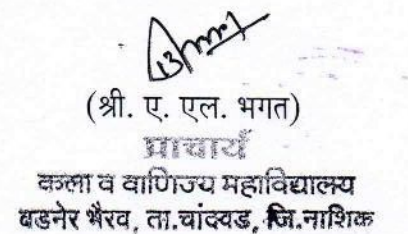 (श्री. ए. एल. भगत)
प्राचार्य
कला व वाणिज्य महाविद्यालय
वडनेर भैरव, ता.चांदवड, जि.नाशिक